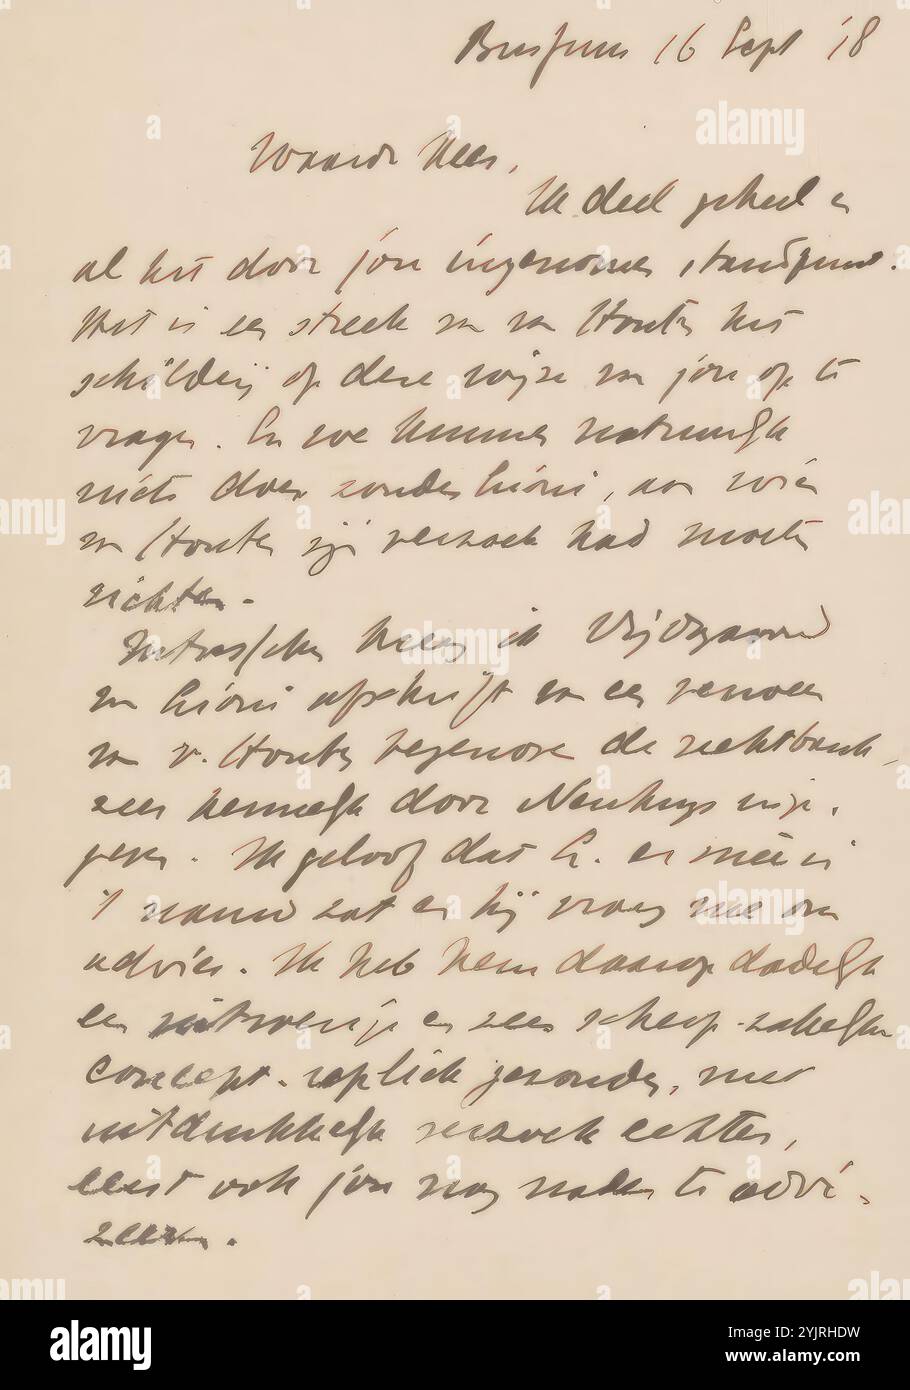 Bussum 16 Sept '18
Waarde Kees,
Ik deel geheel en
al het door jou ingenomen standpunt.
Het is een streek van van Houten het
schilderij op deze wijze van jou op te
vragen. En we kunnen natuurlijk
niets doen zonder Gioni, aan wien
van Houten zijn verzoek had moeten
richten.
Intusschen kreeg ik Vrijdagavond
van Gioni afschrift van een
van v. Houten tegenover de rechtbank,
zeer kennelijk door Neuhuys inge-
geven. Ik geloof dat G. er mee in
't nauw zat en hij vroeg me om
advies. Ik heb hem daarop dadelijk
een uitvoerige en zeer scherp-zakelijke
concept-repliek gezonden, met
uitdrukkelijk verzoek echter,
eerst ook jou nog nader te advi-
zeeren.
alamy
Image ID: 2YJRHDW
www.alamy.com